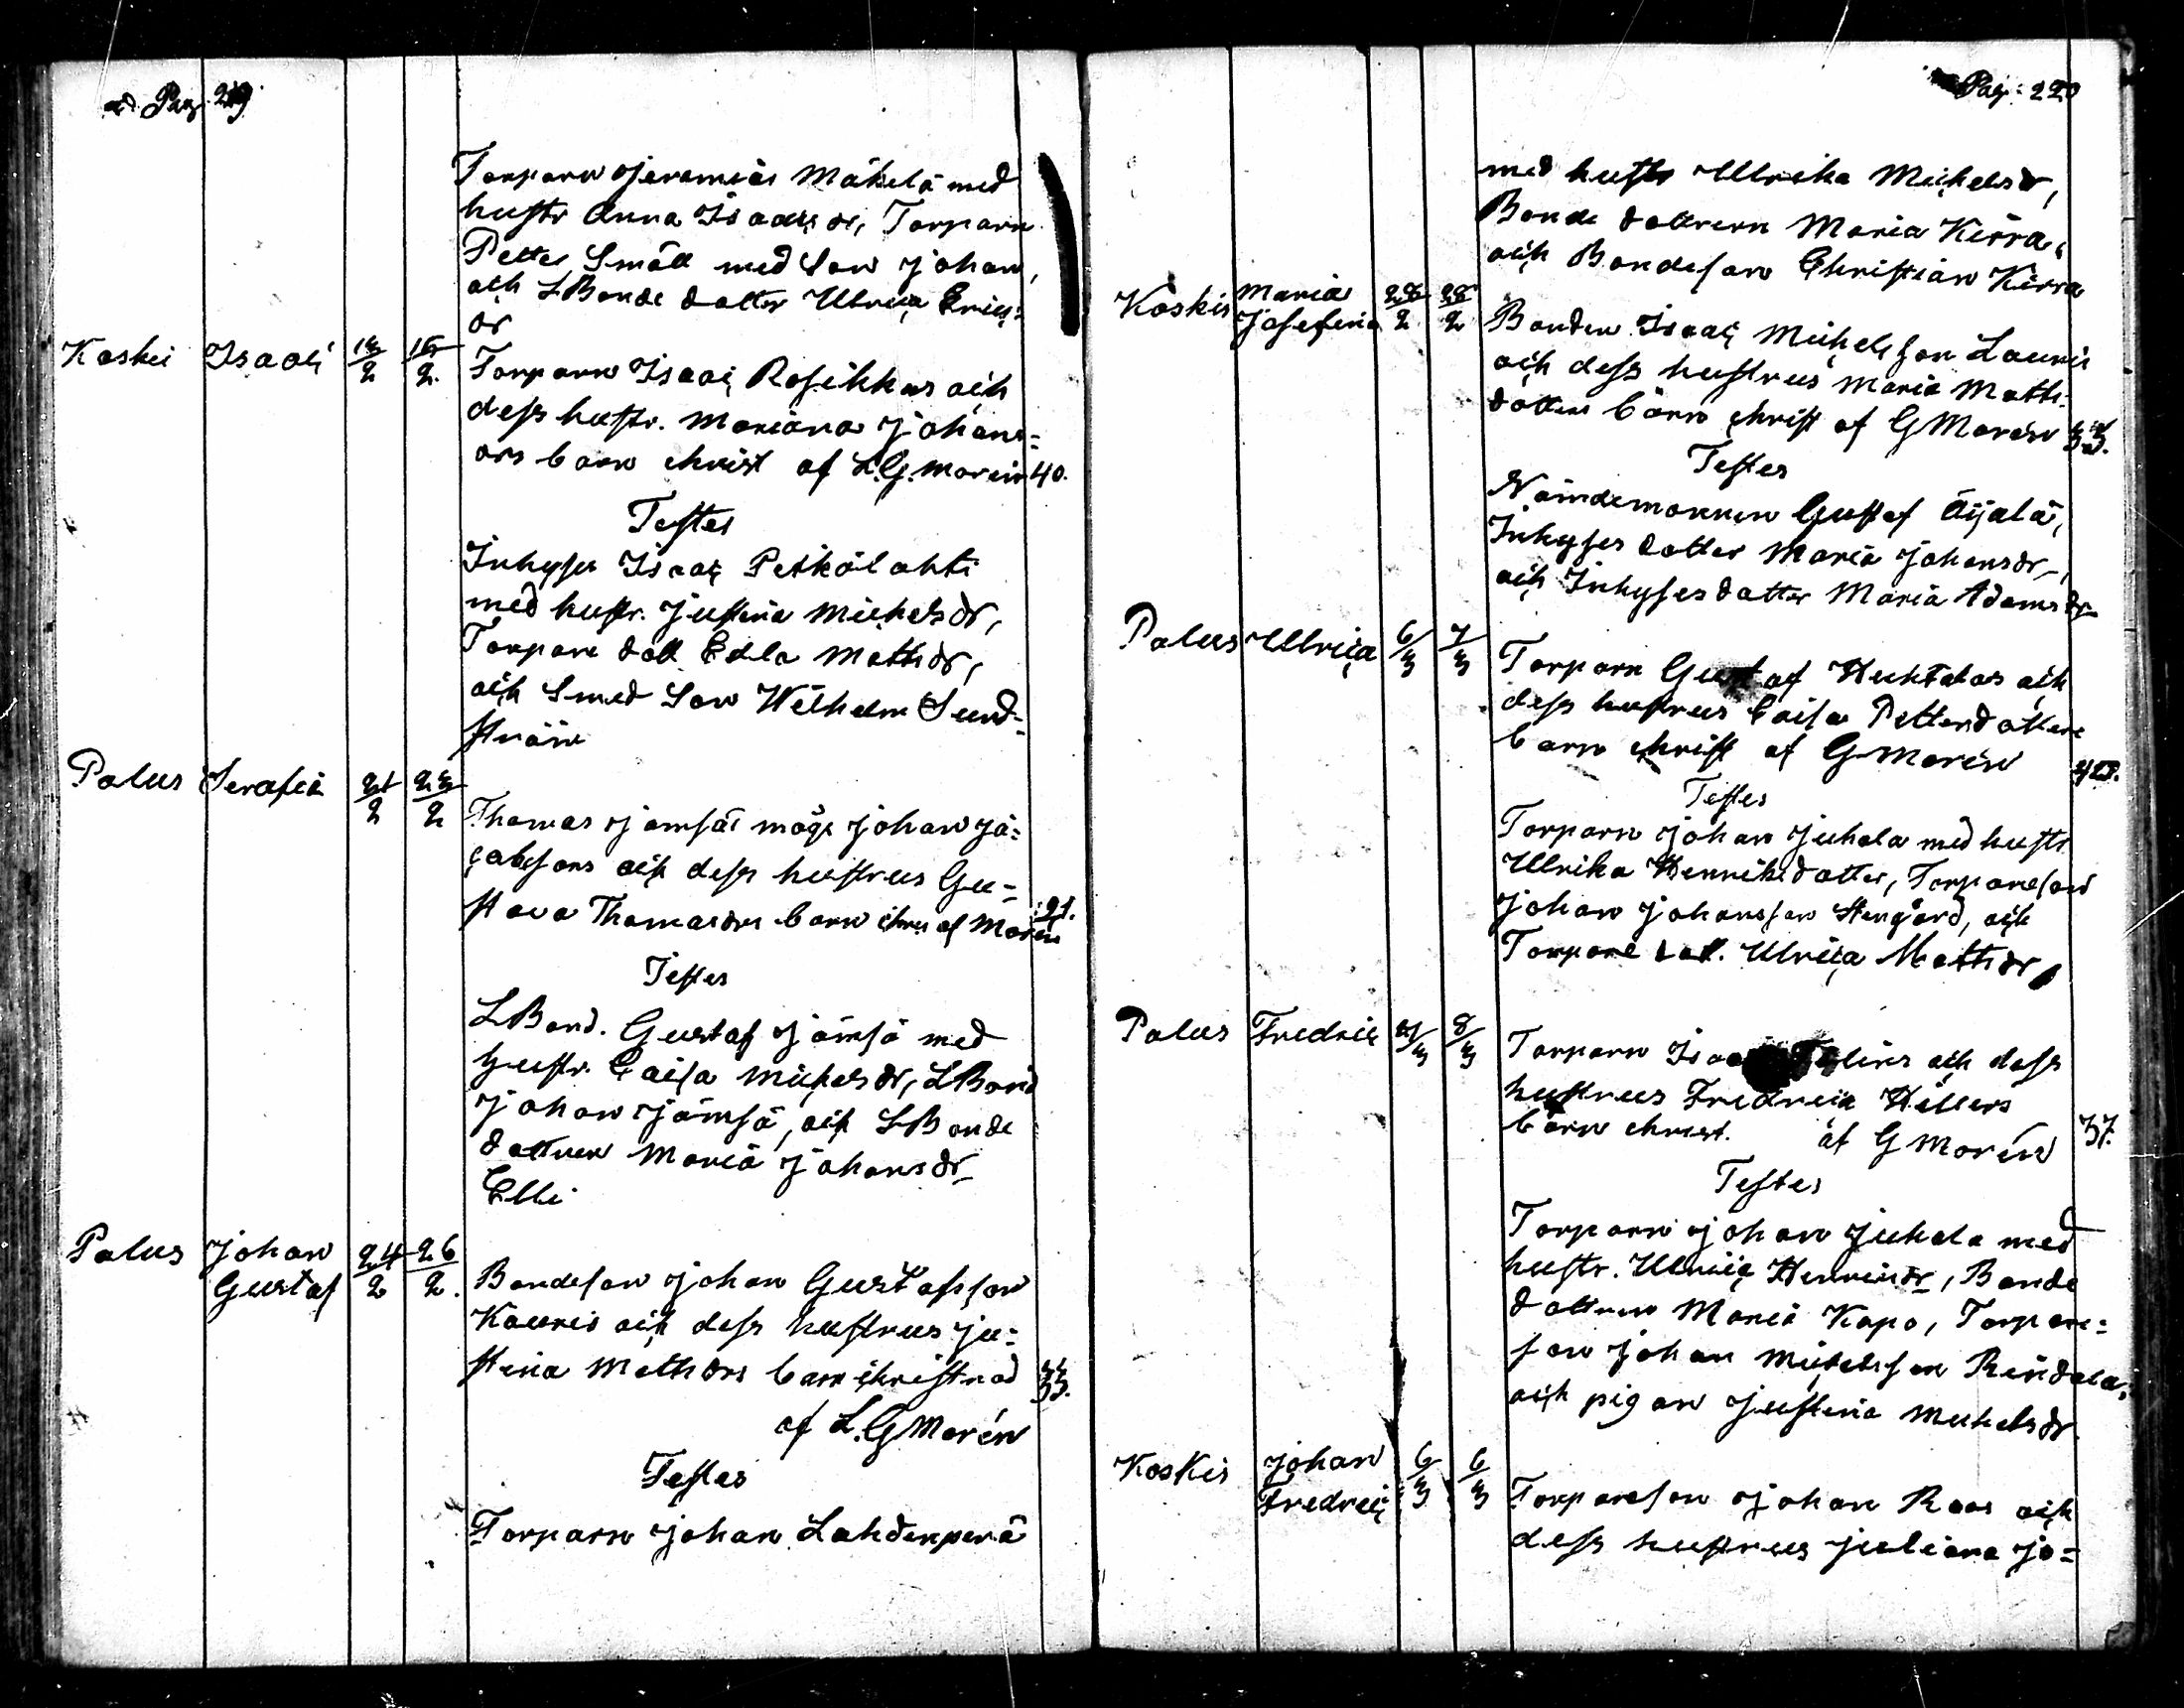 Pag. 219
Torparn Jeremias Mäkelä med
hustr Anna Isacsdr, Torparn
Petter Smäll med Son Johan,
och LBonde dotter Ulrica Erics=
dr
Koski Isaac 13/2 15/2. Torparn Isaac Rosikkas och
dess hustr. Mariana Johans=
drs barn christ af L.G. Morén 40.
Testes
Inhyses Isaac Peskölahti
med hustr. Justina Michelsdr,
Torpare dott Edla Mattsdr,
och Smed Son Wilhelm Sund=
strӧm
Palus Serafia 21/2 23/2
Thomas Jämsäs måg Johan Ja=
cabssons och dess hustrus Gu=
stava Thomasdrs barn chris af Morén 21.
Testes
LBond. Gustaf Jämsä med
hustr. Caisa Michelsdr, LBond
Johan Jämsä, och LBonde
dottren Maria Johansdr
Elli
Palus Johan Gustaf 24/2 26/2.
Bondeson Johan Gustafsson
Kauris och dess hustrus Ju=
stina Mattsdrs barn christnad 33.
af L.G Morén
Testes
Torparn Johan Lahdenperä
Pag. 220
med hustr Ulrika Michelsdr,
Bonde dottren Maria Kirra,
och Bondeson Christian Kirra
Koskis Maria Josefina 28/2 28/2
Bonden Isaac Michelsson Lauris
och dess hustrus Maria Matts=
dotters barn christ af G Morén
Testes
Nämdemannen Gustaf Äijälä,
Inhyses dotter Maria Johansdr,
och Inhyses dotter Maria Adamsdr
Palus Ulrica 6/3 7/3
Torparn Gustaf Huhtalas och
dess hustrus Caisa Petterdotters
barn christ af G Morén
Testes
Torparn Johan Juhola med hustr
Ulrika Henriksdotter, Torpareson
Johan Johansson Stengård, och
Torpare dott. Ulrica Mattsdr
Palus Fredric 8/3
Torparn och dess
hustrus Fredrica Hillers
barn christ. af G Morén 37.
Testes
Torparn Johan Juhola med
hustr. Ulrica Henricsdr, Bonde
dottren Maria Kapo, Torpare=
son Johan Michelsson Rindala,
och pigan Justina Michelsdr.
Koskis Johan Fredric 6/3 6/3
Torpareson Johan Roos och
dess hustrus Juliana Jo=